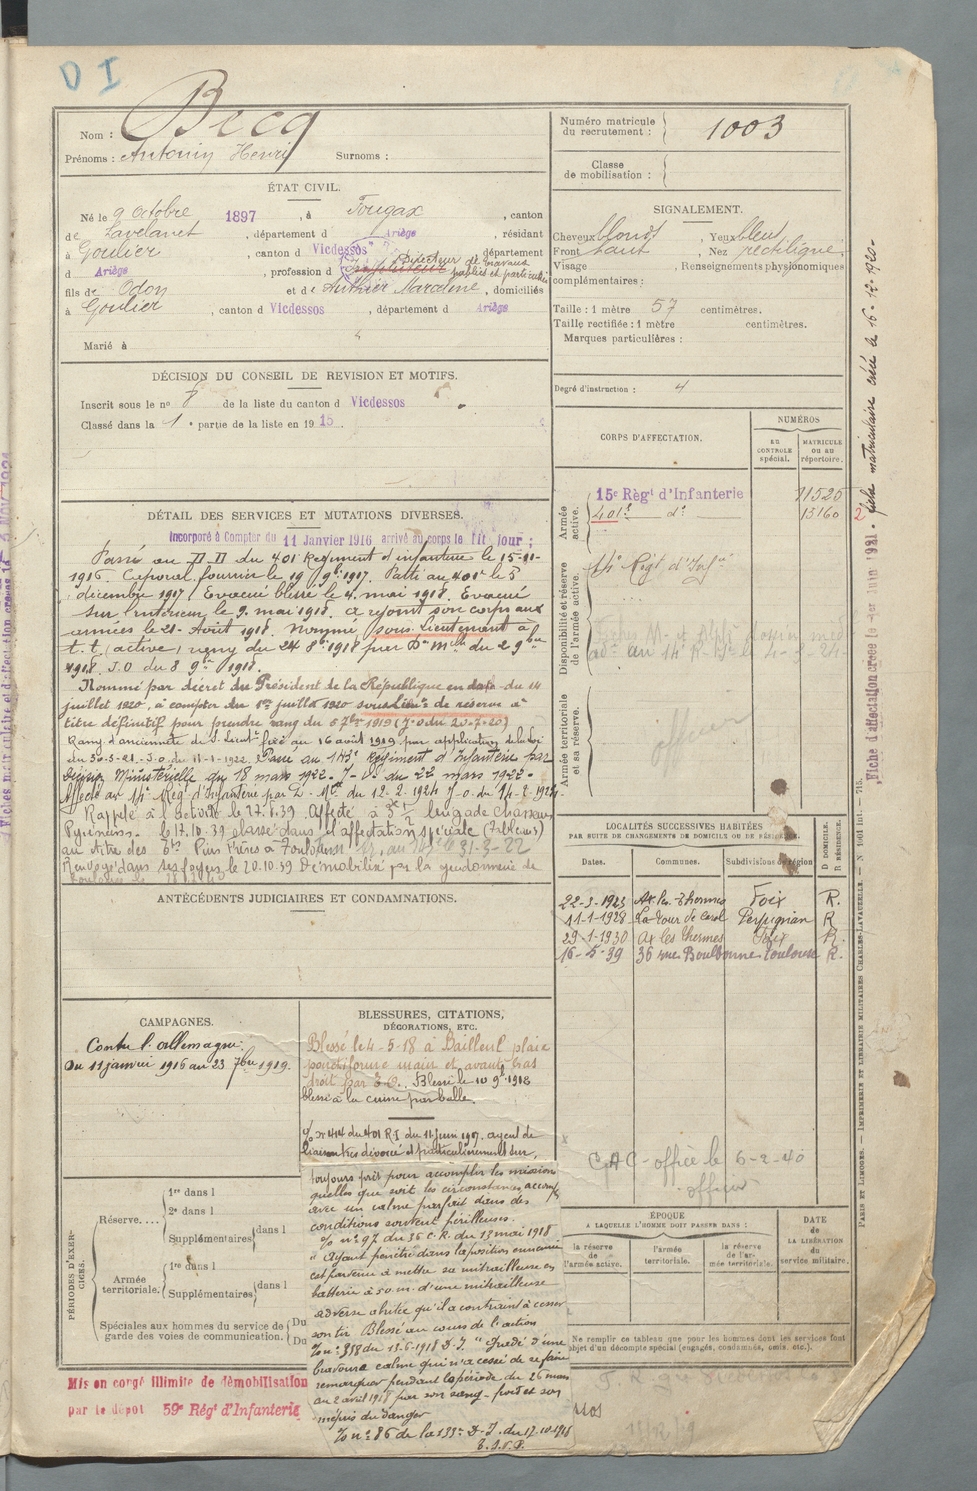 D I
Nom : Becq
Prénoms : Antonin Henri Surnoms :
Numéro matricule du recrutement : 1003
Classe de mobilisation :
ÉTAT CIVIL.
Né le 9 Octobre 1897, à Fougax, canton
de Lavelanet, département d Ariège, résidant
à Goulier, canton d Vicdessos, département
d Ariège, profession d Directeur de travaux publics et particuliers
fils de Odon et de Authier Marceline, domiciliés
à Goulier, canton d Vicdessos, département d Ariège
Marié à
SIGNALEMENT.
Cheveux blonds, Yeux bleus
Front haut, Nez rectiligne
Visage , Renseignements physionomiques
complémentaires :
Taille : 1 mètre 57 centimètres.
Taille rectifiée : 1 mètre centimètres.
Marques particulières :
Degré d'instruction : 4
DÉCISION DU CONSEIL DE REVISION ET MOTIFS.
Inscrit sous le no 8 de la liste du canton d Vicdessos
Classé dans la 1e partie de la liste en 1915.
CORPS D'AFFECTATION.
NUMÉROS
AU CONTROLE spécial.
MATRICULE OU AU répertoire.
Armée active.
15e Régt d'Infanterie 11525
401e do 15160
Disponibilité et réserve de l'armée active.
14e Régt d'Infie
Armée territoriale et sa réserve.
officier
DÉTAIL DES SERVICES ET MUTATIONS DIVERSES.
Incorporé à Compter du 11 Janvier 1916 arrivé au corps le dit jour ;
Passé au D.D du 401 Régiment d'infanterie le 15-11-
1916. Caporal fourrier le 19 9bre 1917. Passé au 401e le 5
décembre 1917. Evacué blessé le 4 mai 1918. Evacué
sur l'intérieur le 9 mai 1918. a rejoint son corps aux
armées le 21 Août 1918. Nommé sous-Lieutenant à
t.t. (active) rang du 24 8bre 1918 par Don Mlle du 2 9bre
1918. J.O du 8 9bre 1918.
Nommé par décret du Président de la République en date du 14
juillet 1920, à compter du 1er juillet 1920 sous Lieut de réserve à
titre définitif pour prendre rang du 5 7bre 1919 (J.O du 20-7-20)
Rang d'ancienneté de S. Lieutt fixé au 16 août 1919 par application de la loi
Passé au 143e Régiment d'Infanterie par
Décision Ministérielle du 18 mars 1922. J.O. du 22 mars 1922.
Affecté au 14e Régt d'Infanterie par D. Mlle du 12-2-1924 J.O. du 14-2-1924.
Rappelé à l'activité le 27.8.39. Affecté à 3e 1/2 brigade Chasseurs
Pyrénéens. le 17.10.39 classé dans l'affectation spéciale (Tableau 3)
au titre des Ets Pins Frères à Toulouse
Renvoyé dans ses foyers le 20.10.39 Démobilisé par la gendarmerie de
Toulouse le
LOCALITÉS SUCCESSIVES HABITÉES
PAR SUITE DE CHANGEMENTS DE DOMICILE OU DE RÉSIDENCE.
Dates. Communes. Subdivisions de région D DOMICILE. R RÉSIDENCE.
22-3-1923 Ax les Thermes Foix R.
11-1-1928 La Tour de Carol Perpignan R
29-1-1930 Ax les Thermes Foix R.
16-5-39 36 rue Boulbonne Toulouse R.
ANTÉCÉDENTS JUDICIAIRES ET CONDAMNATIONS.
CAMPAGNES.
Contre l'Allemagne.
Du 11 janvier 1916 au 23 7bre 1919.
BLESSURES, CITATIONS,
DÉCORATIONS, ETC.
Blessé le 4-5-18 à Bailleul plaie
ponctiforme main et avant bras
droit par E.O. Blessé le 10 9e 1918
blessé à la cuisse par balle.
O/ no 414 du 401 R.I du 11 Juin 1917. agent de
liaison très dévoué et particulièrement sûr,
toujours prêt pour accomplir les missions
quelles que soit les circonstances, accompli
avec un calme parfait dans des
conditions souvent périlleuses.
O/ no 97 du 36 C.A. du 13 mai 1918
" Ayant pénétré dans la position ennemie
est parvenu à mettre sa mitrailleuse en
batterie à 50 m. d'une mitrailleuse
adverse abritée qu'il a contraint à cesser
son tir Blessé au cours de l'action
O/ no 338 du 13-6-1918 D.I. "
bravoure calme qui n'a cessé de se faire
remarquer pendant la période du 26 mars
au 2 avril 1918 par son sang-froid et son
mépris du danger
O/ no 86 de la 133e D.I. du 17.10.1918
CAC - office le 6-2-40
officier
PÉRIODES D'EXERCICES.
Réserve.... 1re dans l
2e dans l
Supplémentaires dans l
Armée territoriale. 1re dans l
Supplémentaires dans l
Spéciales aux hommes du service de garde des voies de communication. Du
Du
ÉPOQUE
A LAQUELLE L'HOMME DOIT PASSER DANS :
la réserve de l'armée active.
l'armée territoriale.
la réserve de l'armée territoriale.
DATE de LA LIBÉRATION du service militaire.
Ne remplir ce tableau que pour les hommes dont les services font
objet d'un décompte spécial (engagés, condamnés, omis, etc.).
Mis en congé illimité de démobilisation
par le dépôt 59e Régt d'Infanterie
2 fiche matriculaire créée le 16-12-1920.
Fiche d'affectation créée le 1er Juin 1921.
PARIS ET LIMOGES. — IMPRIMERIE ET LIBRAIRIE MILITAIRES CHARLES-LAVAUZELLE. — N° 1001 Int. — 715.